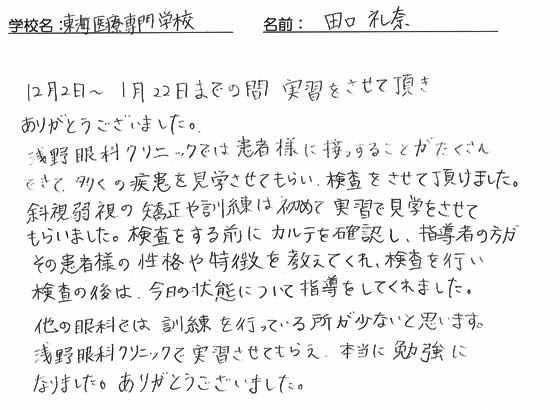 学校名：東海医療専門学校　名前：田口 礼奈
12月2日～ 1月22日までの間 実習をさせて頂き
ありがとうございました。
浅野眼科クリニックでは患者様に接っすることがたくさん
できて、多くの疾患を見学させてもらい、検査をさせて頂けました。
斜視弱視の矯正や訓練は初めて実習で見学をさせて
もらいました。検査をする前にカルテを確認し、指導者の方が
その患者様の性格や特徴を教えてくれ、検査を行い
検査の後は、今日の状態について指導をしてくれました。
他の眼科では訓練を行っている所が少ないと思います。
浅野眼科クリニックで実習させてもらえ、本当に勉強に
なりました。ありがとうございました。